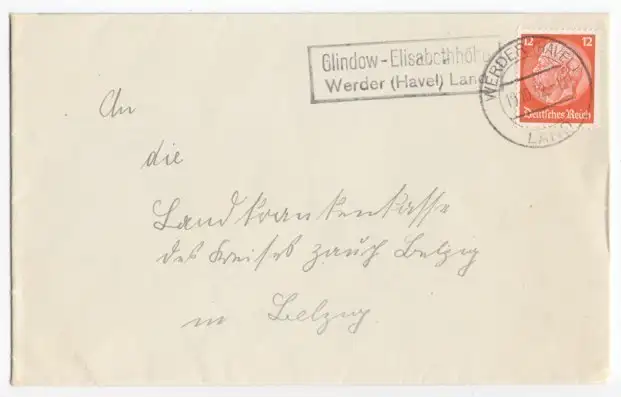 Glindow-Elisabethhöhe
Werder (Havel) Land
12 12
Deutsches Reich
WERDER (HAVEL)
LAND
An
die
Landkrankenkasse
des Kreises Zauch Belzig
in Belzig